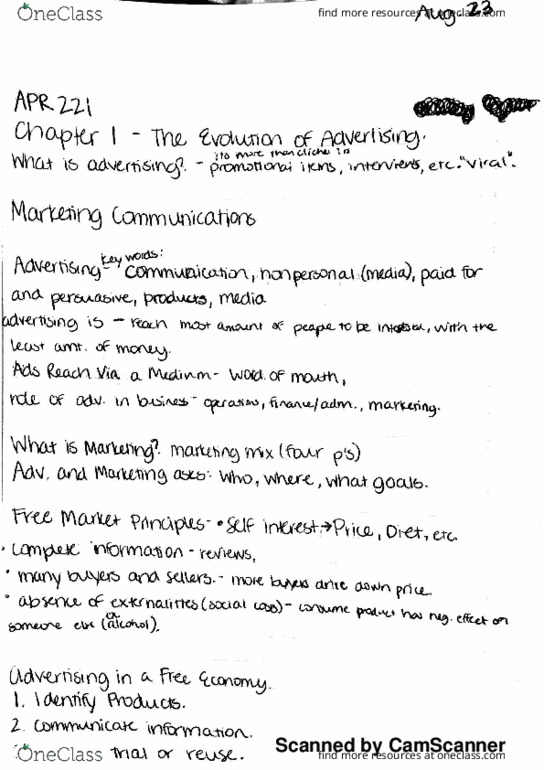 OneClass
find more resources at oneclass.com
Aug. 23
APR 221
Chapter 1 - The Evolution of Advertising.
its more than cliche is
What is advertising? - promotional items, interviews, etc. "viral".
Marketing Communications
key words:
Advertising - communication, nonpersonal (media), paid for
and persuasive, products, media
advertising is - reach most amount of people to be, with the
least amt. of money.
Ads Reach Via a Medium - word of mouth,
role of adv. in business - operations, finance/adm., marketing.
What is Marketing? marketing mix (four p's)
Adv. and Marketing asks: who, where, what goals.
Free Market Principles - • Self interest → Price, Diet, etc.
• complete information - reviews,
• many buyers and sellers. - more buyers drive down price.
• absence of externalities (social cost) - consume product has neg. effect on
ex
someone else (alcohol).
Advertising in a Free Economy.
1. Identify Products.
2. communicate information.
trial or reuse.
Scanned by CamScanner
OneClass
find more resources at oneclass.com